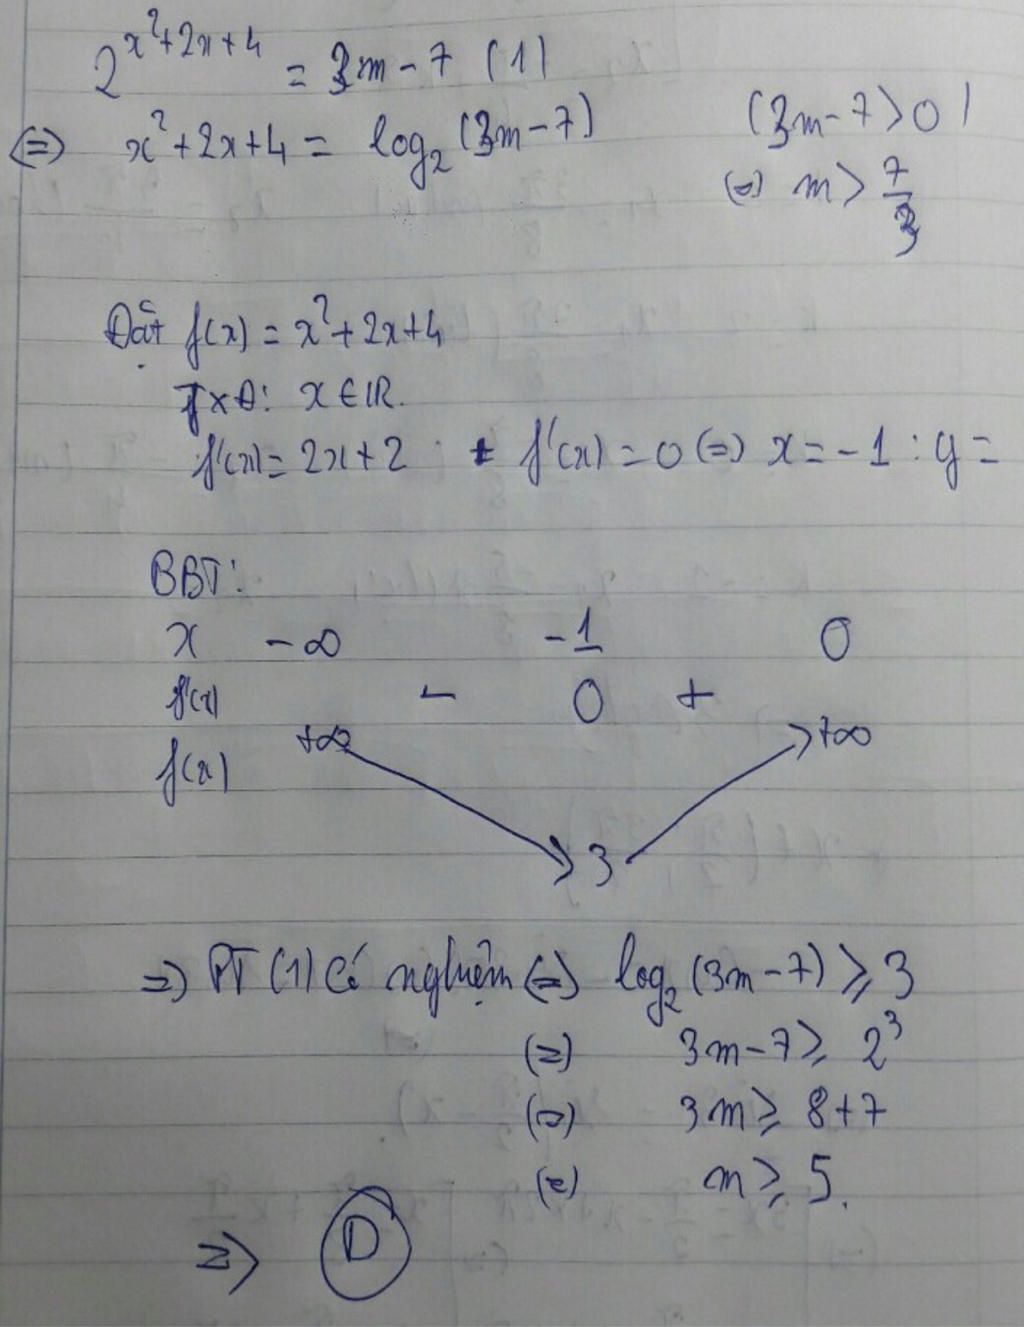 2^{x²+2x+4} = 3m - 7 (1)
(=) x²+2x+4 = log₂ (3m-7) (3m-7>0)
(=) m > 7/3
Đặt f(x) = x²+2x+4
TXĐ: x ∈ IR.
f'(x) = 2x+2 ; f'(x) = 0 (=) x = -1 : y =
BBT:
x -∞ -1 0
f'(x) - 0 +
f(x) +∞ 3 +∞
=) PT (1) Có nghiệm (=) log₂ (3m-7) ≥ 3
(=) 3m-7 ≥ 2³
(=) 3m ≥ 8+7
(=) m ≥ 5.
=) D